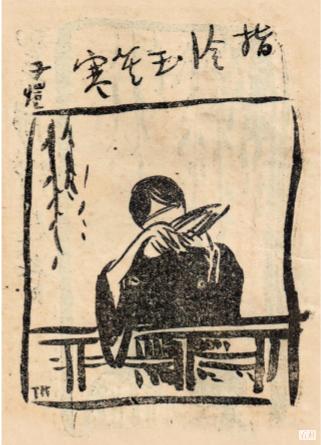 指冷玉笙寒
子愷
TK